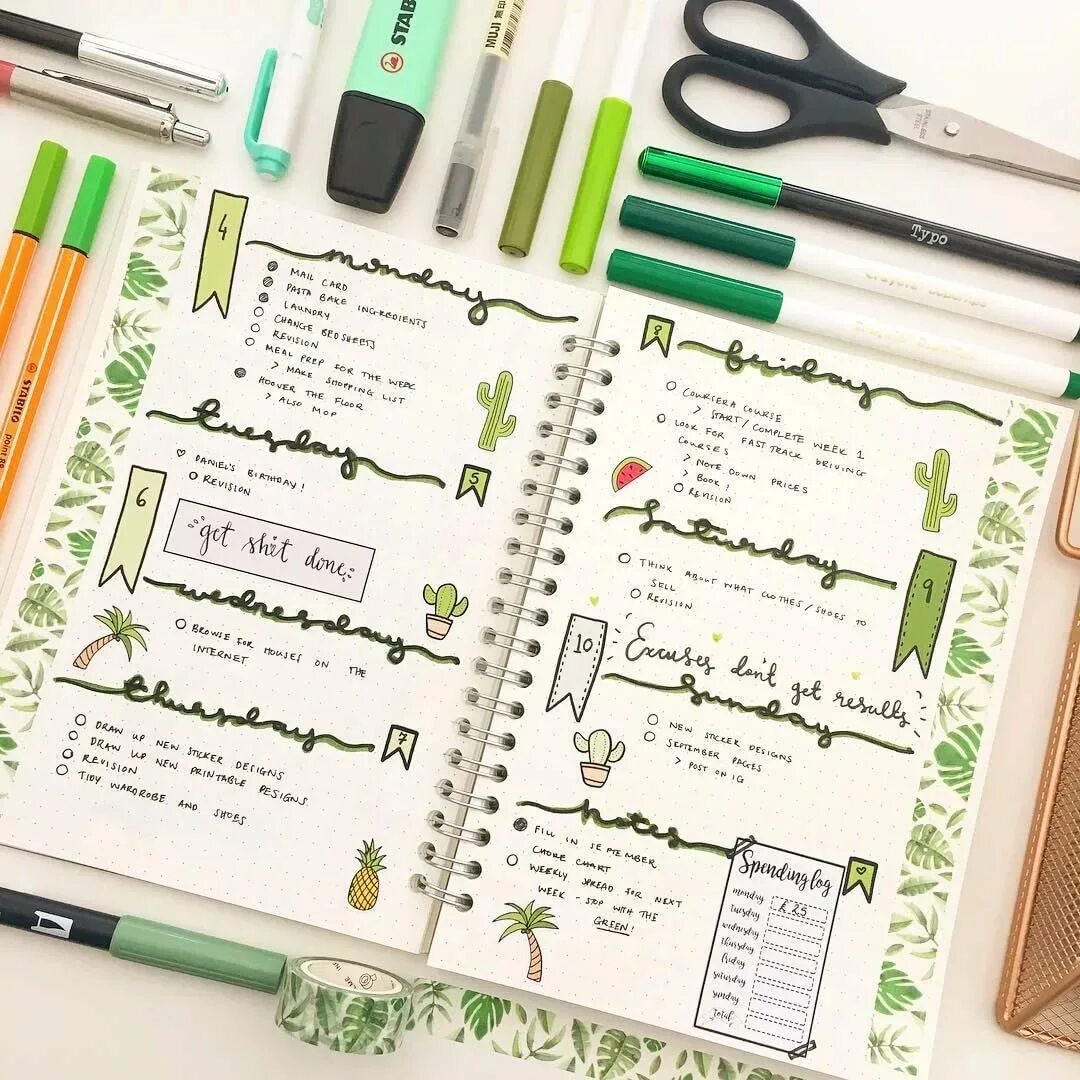 STABILO
MUJI 無印
STAINLESS
STEEL
Typo
STABILO
point 88
4
monday
MAIL CARD
PASTA BAKE INGREDIENTS
LAUNDRY
CHANGE BEDSHEETS
REVISION
MEAL PREP FOR THE WEEK
> MAKE SHOPPING LIST
HOOVER THE FLOOR
> ALSO MOP
tuesday
5
♡ DANIEL'S BIRTHDAY!
REVISION
6
get shit done
wednesday
BROWSE FOR HOUSES ON THE
INTERNET
thursday
7
DRAW UP NEW STICKER DESIGNS
DRAW UP NEW PRINTABLE DESIGNS
REVISION
TIDY WARDROBE AND SHOES
8
friday
COURSERA COURSE
> START/COMPLETE WEEK 1
LOOK FOR FAST TRACK DRIVING
COURSES
> NOTE DOWN PRICES
> BOOK!
REVISION
saturday
9
THINK ABOUT WHAT CLOTHES/SHOES TO
SELL
REVISION
10
Excuses don't get results
sunday
NEW STICKER DESIGNS
SEPTEMBER PAGES
> POST ON IG
notes
FILL IN SEPTEMBER
CHORE CHART
WEEKLY SPREAD FOR NEXT
WEEK - STOP WITH THE
GREEN!
Spending log
monday £25
tuesday
wednesday
thursday
friday
saturday
sunday
total